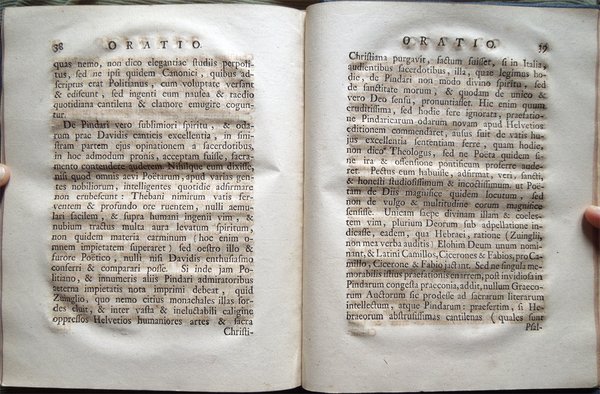 38 ORATIO.
quas nemo, non dico elegantiae studiis perpoli-
tus, sed ne ipsi quidem Canonici, quibus ad-
scriptus erat Politianus, cum voluptate versant
& ediscunt, sed ingenii cum nausea & taedio
quotidiana cantilena & clamore emugire cogun-
tur.
De Pindari vero sublimiori spiritu, & oda-
rum prae Davidis canticis excellentia, in sini-
stram partem ejus opinationem a sacerdotibus,
in hoc admodum pronis, acceptam fuisse, sacra-
mento contendere auderem. Nihilque eum dixisse,
nisi quod omnis aevi Poëtarum, apud varias gen-
tes nobiliorum, intelligentes quotidie adfirmare
non erubescunt: Thebani nimirum vatis fer-
ventem & profundo ore ruentem, nulli aemu-
lari facilem, & supra humani ingenii vim, &
nubium tractus multa aura levatum spiritum,
non quidem materia carminum (hoc enim o-
mnem impietatem superaret) sed oestro illo &
furore Poëtico, nulli nisi Davidis enthusiasmo
conferri & comparari posse. Si inde jam Po-
litiano, & innumeris aliis Pindari admiratoribus
teterrima impietatis nota imprimi debeat, quid
Zuinglio, quo nemo citius monachales illas for-
des eluit, & inter vasta & ineluctabili caligine
oppressos Helvetios humaniores artes & sacra
Christi-
ORATIO. 39
Christiana purgavit, factum fuisset, si in Italia,
audientibus sacerdotibus, illa, quae legimus ho-
die, de Pindari non modo divino spiritu, sed
de sanctitate morum, & quodam de unico &
vero Deo sensu, pronuntiasset. Hic enim quum
eruditissima, sed hodie fere ignorata, praefatio-
ne Pindaricarum odarum novam apud Helvetios
editionem commendaret, ausus fuit de vatis hu-
jus excellentia sententiam ferre, quam hodie,
non dico Theologus, sed ne Poëta quidem si-
ne ira & offensione pontificum proferre aude-
ret. Pectus eum habuisse, adfirmat, veri, sancti,
& honesti studiosissimum & incoctissimum. ut Poe-
tam de Diis magnifice quidem locutum, sed
non de vulgo & multitudine eorum magnifice
sensisse. Unicam saepe divinam illam & coeles-
tem vim, plurium Deorum sub adpellatione in-
dicasse, eadem, qua Hebraei, ratione (Zuinglii,
non mea verba auditis) Elohim Deum unum nomi-
nant, & Latini Camillos, Cicerones & Fabios, pro Ca-
millo, Cicerone & Fabio jactant. Sed ne singula me-
morabilis istius praefationis enarrem, pot invidiosa in
Pindarum congesta praeconia, addit, nullum Graeco-
rum Auctorem sic prodesse ad sacrarum literarum
intellectum, atque Pindarum: praesertim, si He-
braeorum abstrusissimas cantilenas (quales sunt
Psal-